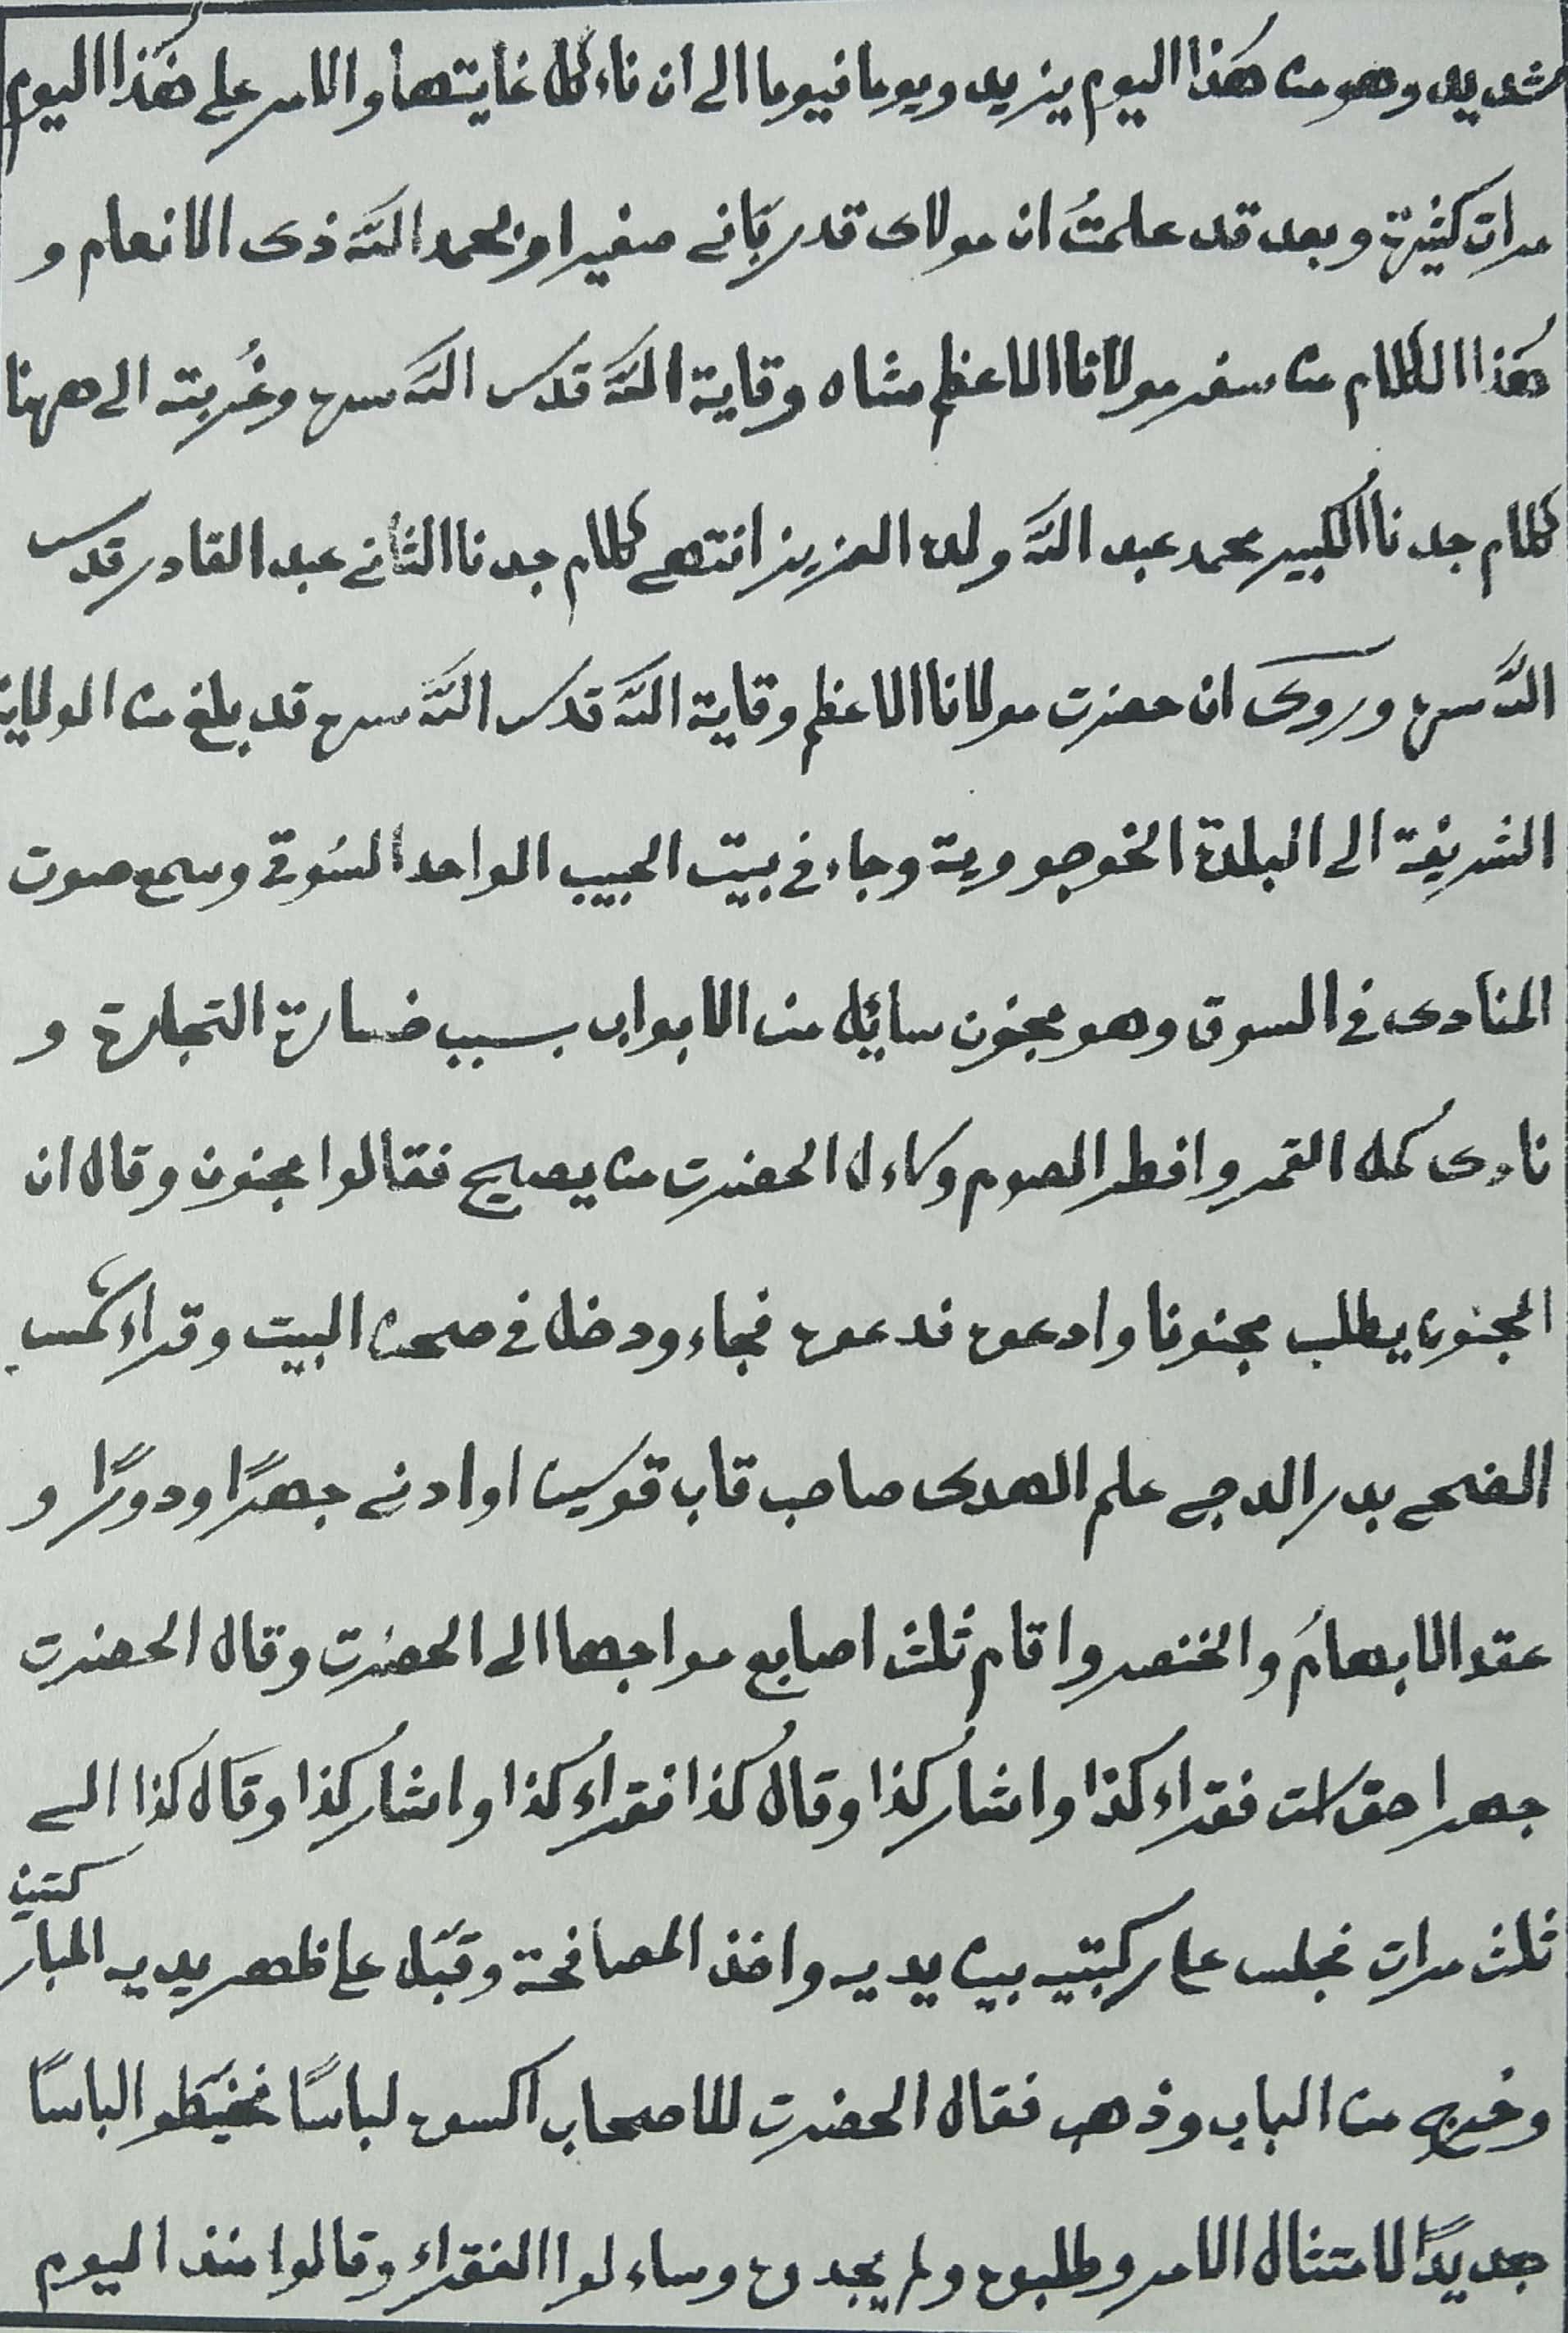 شديد وهو من هٰذا اليوم يزيد ويوما فيوما الى ان ناء كل غايتها والامر على هٰذا اليوم
مرات كثيرة وبعد قد علمتُ ان مولاى قد ربّانے صغيرا والحمد اللّه ذى الانعام و
هٰذا الكلام من سفر مولانا الاعظم شاه وقاية اللّه قدس اللّه سره وغُربته الى ههنا
كلام جدنا الكبير محمد عبد اللّه ولده العزيز انتهى كلام جدنا الثانے عبد القادر قدس
اللّه سره وروى ان حضرت مولانا الاعظم وقاية اللّه قدس اللّه سره قد بلغ من الولاية
الشريفة الى البلدة الخوجووية وجاء فى بيت الحبيب الواحد السُوقے وسمع صوت
المنادى فى السوق وهو مجنون سائل من الابواب بسبب خسارة التجارة و
نادى كمل القمر وافطر الصوم وساءل الحضرت من يصيح فقالوا مجنون وقال ان
المجنون يطلب مجنونا وادعوه فدعوه فجاء ودخل فى صحن البيت وقراء شمس
الضحے بدر الدجے علم الهدى صاحب قاب قوسين اوادنے جهرًا ودورًا و
عقد الابهامَ والخنصر واقام ثلث اصابع مواجها الى الحضرت وقال الحضرت
جهرا حق است فقراء كذا واشار كذا وقال كذا فقراء كذا واشار كذا وقال كذا الى
ثلث مرات فجلس على ركبتيه بين يديه واخذ المصافحة وقَبّل على ظهر يديه المباركتين
وخرج من الباب وذهب فقال الحضرت للاصحاب اكسوه لباسًا فخيّطو الباسًا
جديدًا لامتثال الامر وطلبوه ولم يجدوه وساءلوا الفقراء وقالوا منذ اليوم